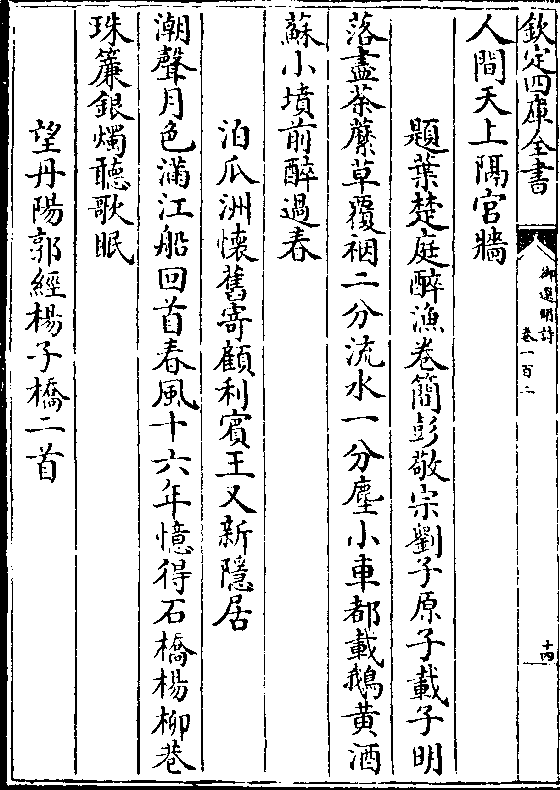 欽定四庫全書
御選明詩
卷一百二
十四
人間天上隔宮牆
題葉楚庭醉漁卷簡彭敬宗劉子原子載子明
落盡荼蘼草覆裀二分流水一分塵小車都載鵝黃酒
蘇小墳前醉過春
泊瓜洲懷舊寄顧利賓王又新隱居
潮聲月色滿江船回首春風十六年憶得石橋楊柳巷
珠簾銀燭聽歌眠
望丹陽郭經楊子橋二首